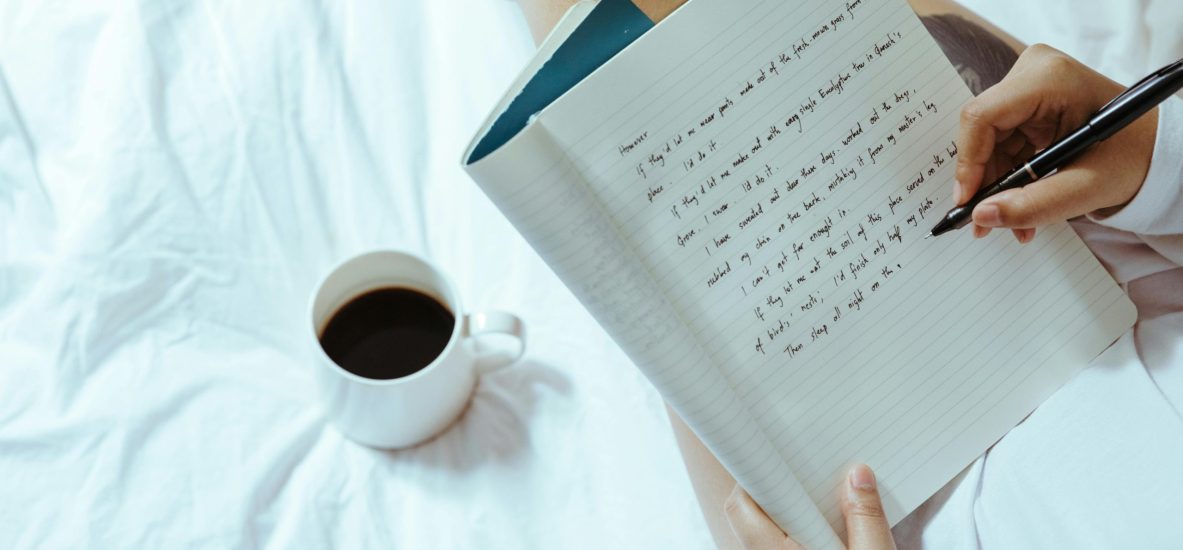 However
If they'd let me wear pants made out of the fresh-mown grass from
place I'd do it.
If they'd let me make out with every single Eucalyptus tree in Queneh's
Grove, I swear I'd do it.
I have sweated out dear these days, worked out the dregs,
rubbed my chin on tree bark, mistaking it from my master's leg
I can't get far enough in.
If they let me eat the soil of this place served on the bed
of birds' nests; I'd finish only half my plate.
Then sleep all night on the